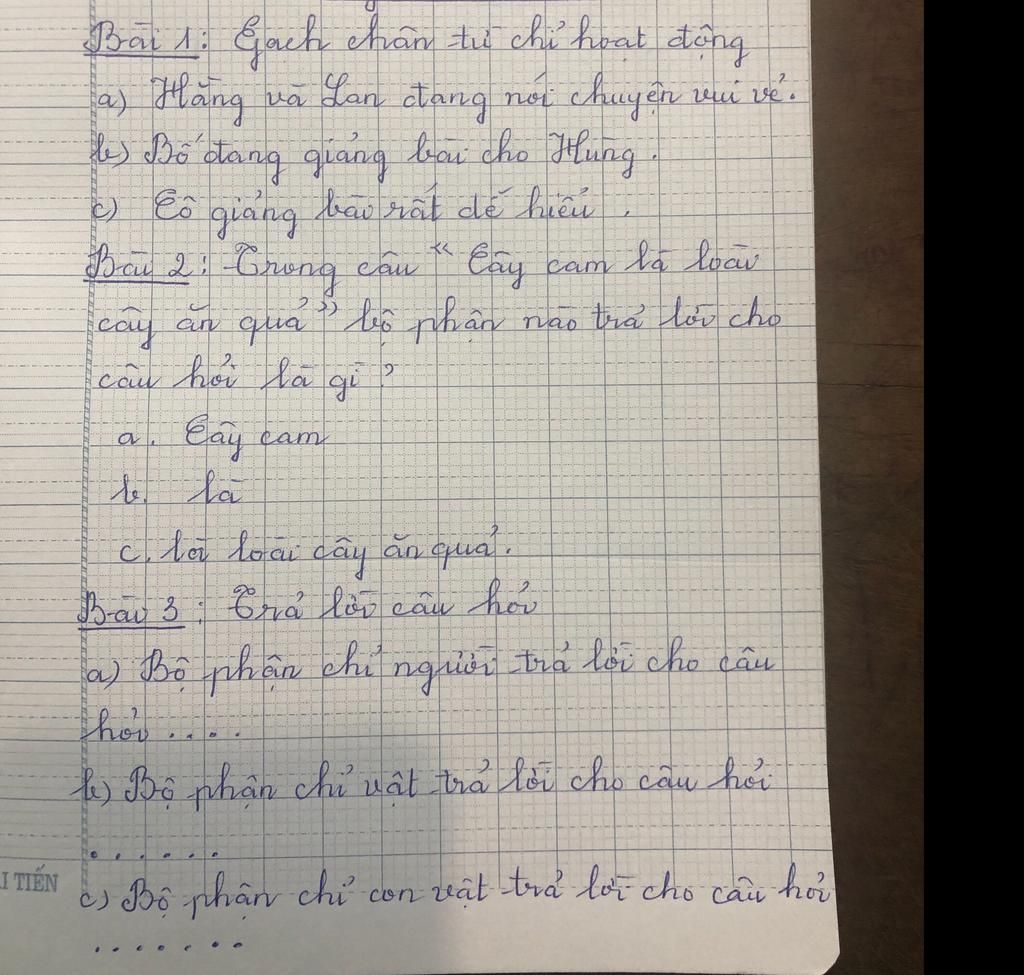 Bài 1: Gạch chân từ chỉ hoạt động
a) Hằng và Lan đang nói chuyện vui vẻ.
b) Bố đang giảng bài cho Hùng.
c) Cô giảng bài rất dễ hiểu.
Bài 2: Trong câu "Cây cam là loài
cây ăn quả" bộ phận nào trả lời cho
câu hỏi là gì?
a. Cây cam
b. là
c. loài cây ăn quả.
Bài 3: Trả lời câu hỏi
a) Bộ phận chỉ người trả lời cho câu
hỏi ....
b) Bộ phận chỉ vật trả lời cho câu hỏi
......
I TIẾN
c) Bộ phận chỉ con vật trả lời cho câu hỏi
.......